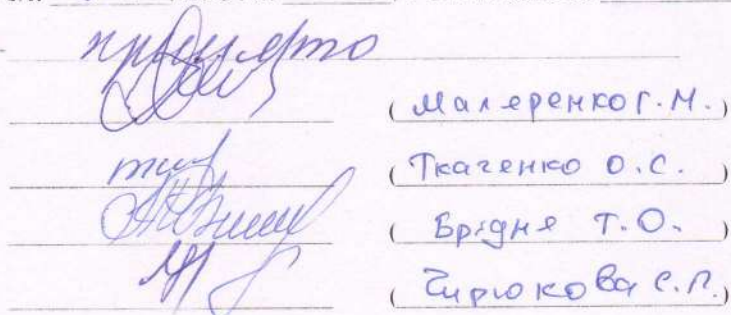 прийнято
(Маляренко Г.М.)
(Ткаченко О.С.)
(Брідня Т.О.)
(Чирюкова С.Л.)